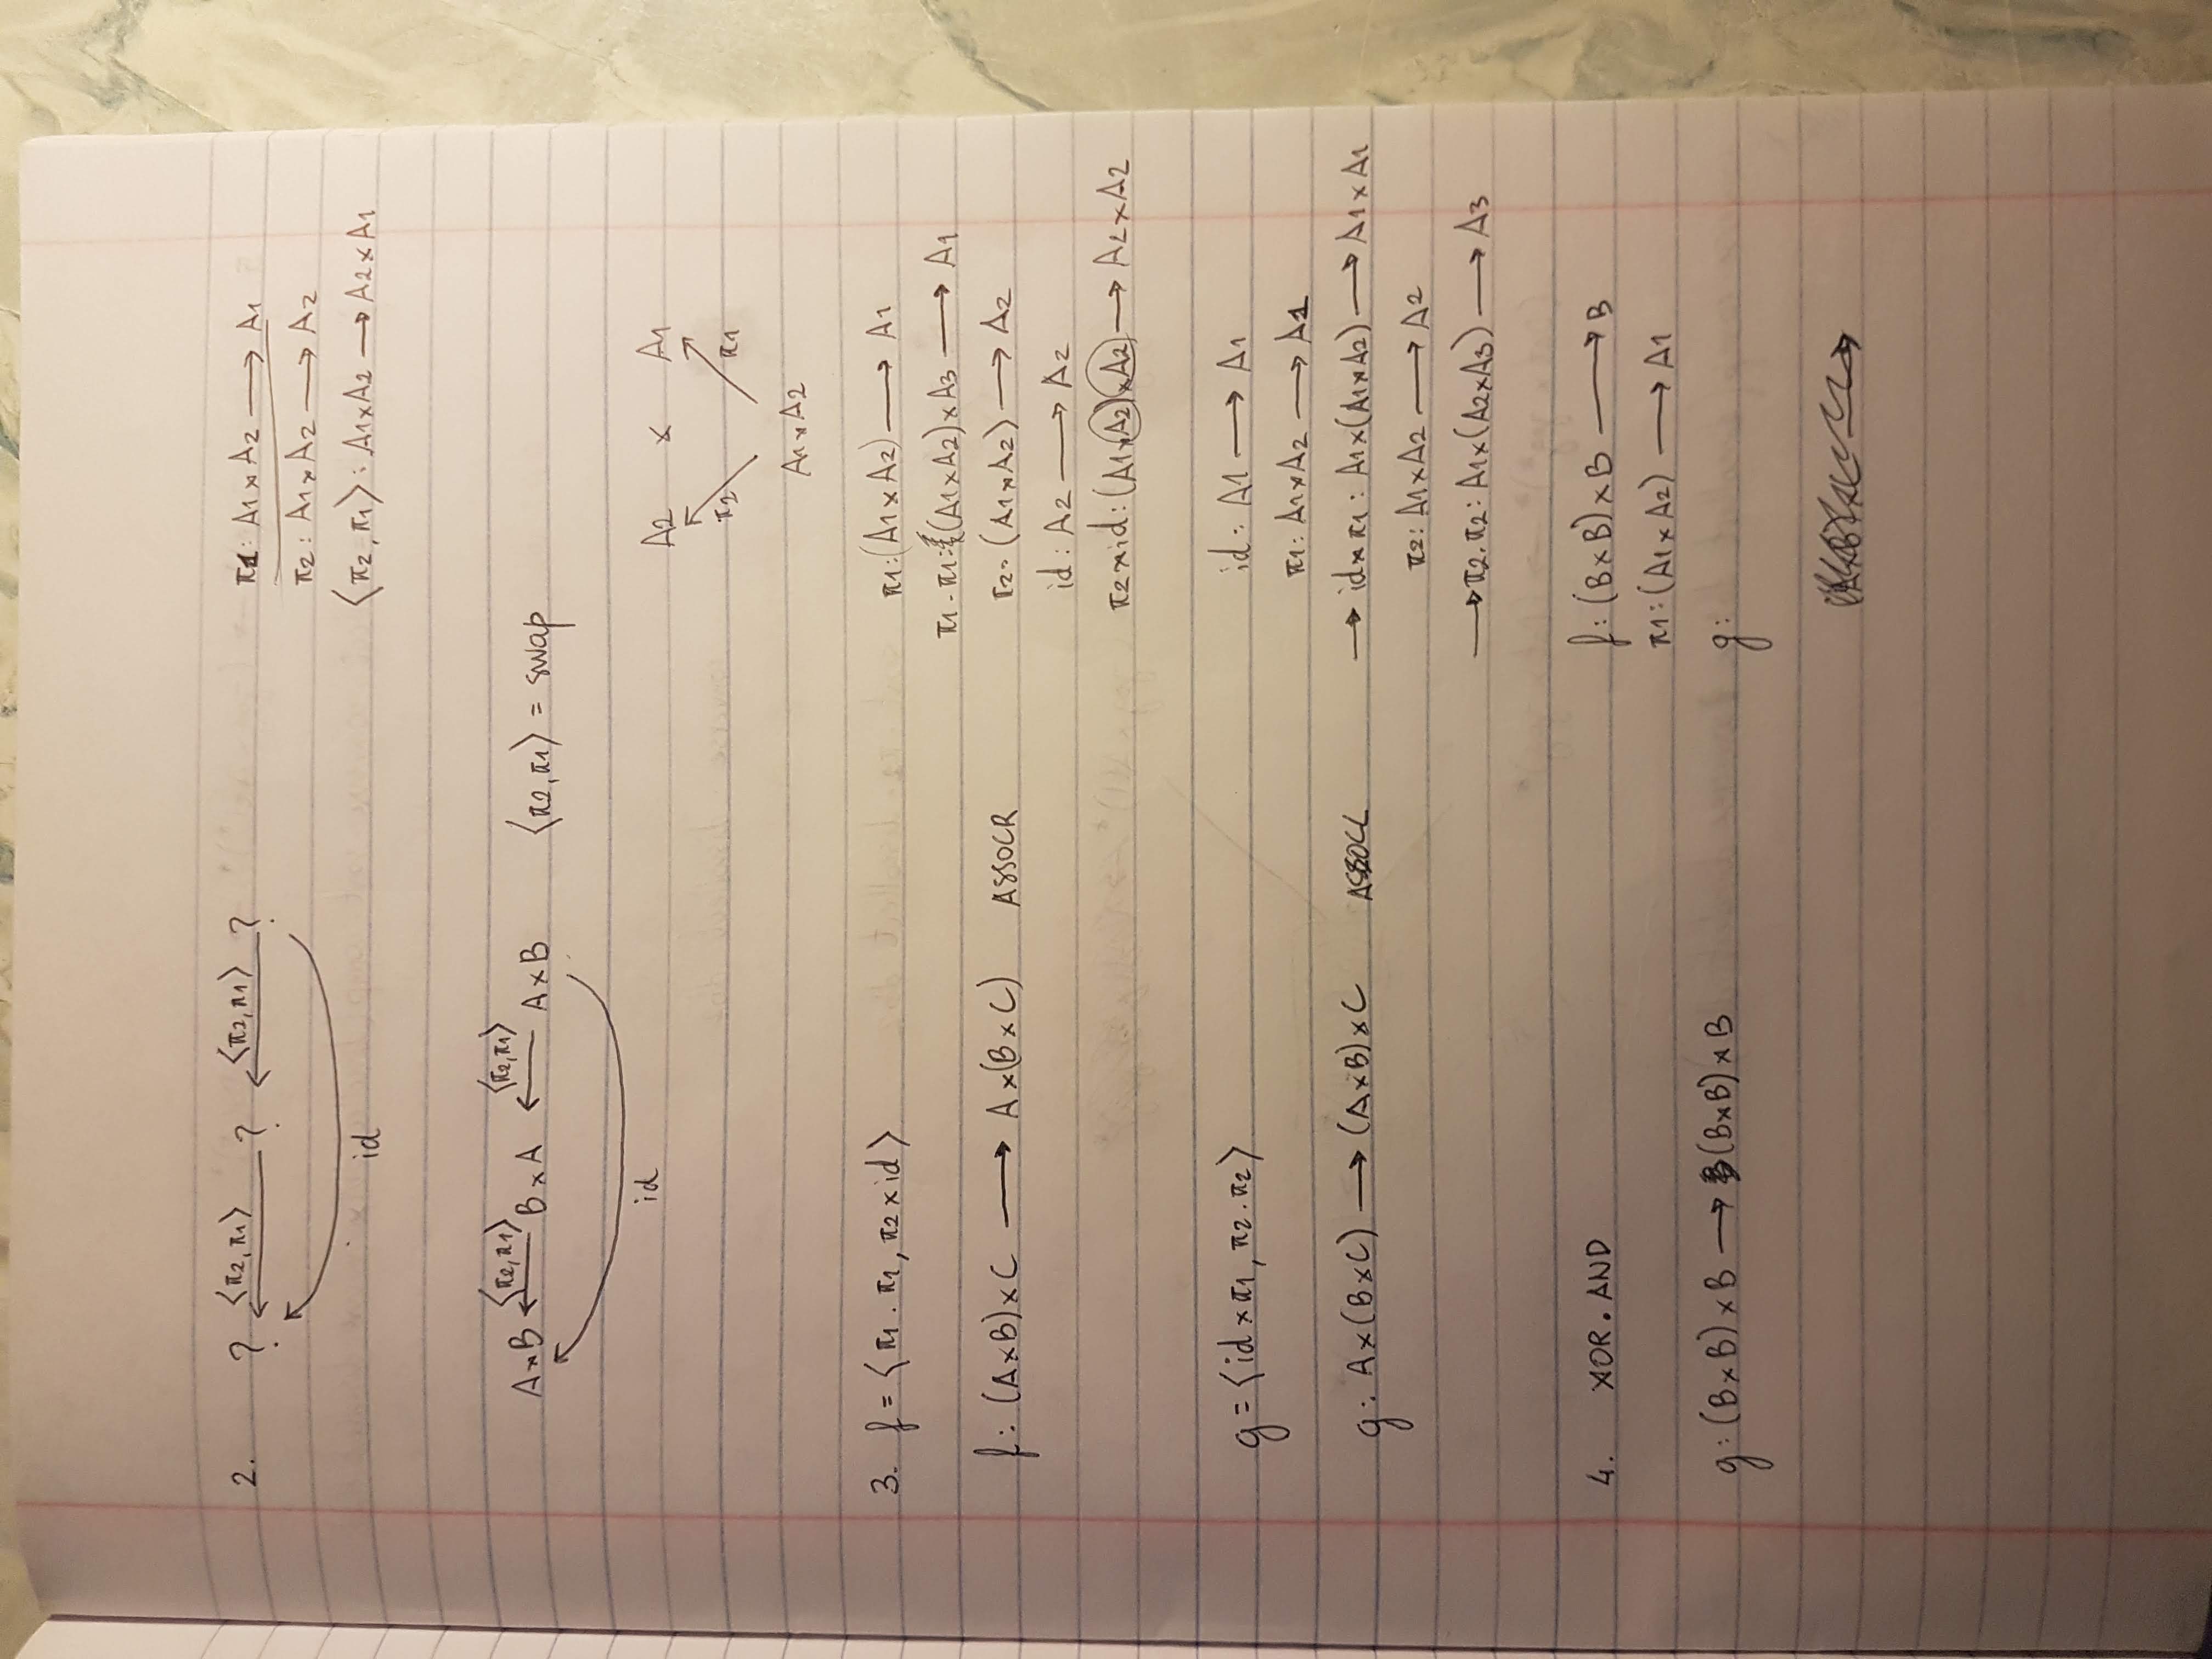 2. ? ⟵ ⟨π2, π1⟩ ? ⟵ ⟨π2, π1⟩ ?
id
π1: A1 × A2 ⟶ A1
π2: A1 × A2 ⟶ A2
⟨π2, π1⟩: A1×A2 ⟶ A2×A1
A×B ⟵ ⟨π2, π1⟩ B×A ⟵ ⟨π2, π1⟩ A×B
id
⟨π2, π1⟩ = swap
A2 × A1
π2 π1
A1×A2
3. f = ⟨π1 . π1, π2 × id⟩
f: (A×B)×C ⟶ A×(B×C) ASSOCR
π1: (A1×A2) ⟶ A1
π1 . π1: (A1×A2)×A3 ⟶ A1
π2: (A1×A2) ⟶ A2
id: A2 ⟶ A2
π2×id: (A1×A2)×A2 ⟶ A2×A2
g = ⟨id × π1, π2 . π2⟩
g: A×(B×C) ⟶ (A×B)×C ASSOCL
id: A1 ⟶ A1
π1: A1×A2 ⟶ A1
→ id×π1: A1×(A1×A2) ⟶ A1×A1
π2: A1×A2 ⟶ A2
→ π2.π2: A1×(A2×A3) ⟶ A3
4. XOR . AND
g: (B×B)×B ⟶ (B×B)×B
f: (B×B)×B ⟶ B
π1: (A1×A2) ⟶ A1
g: